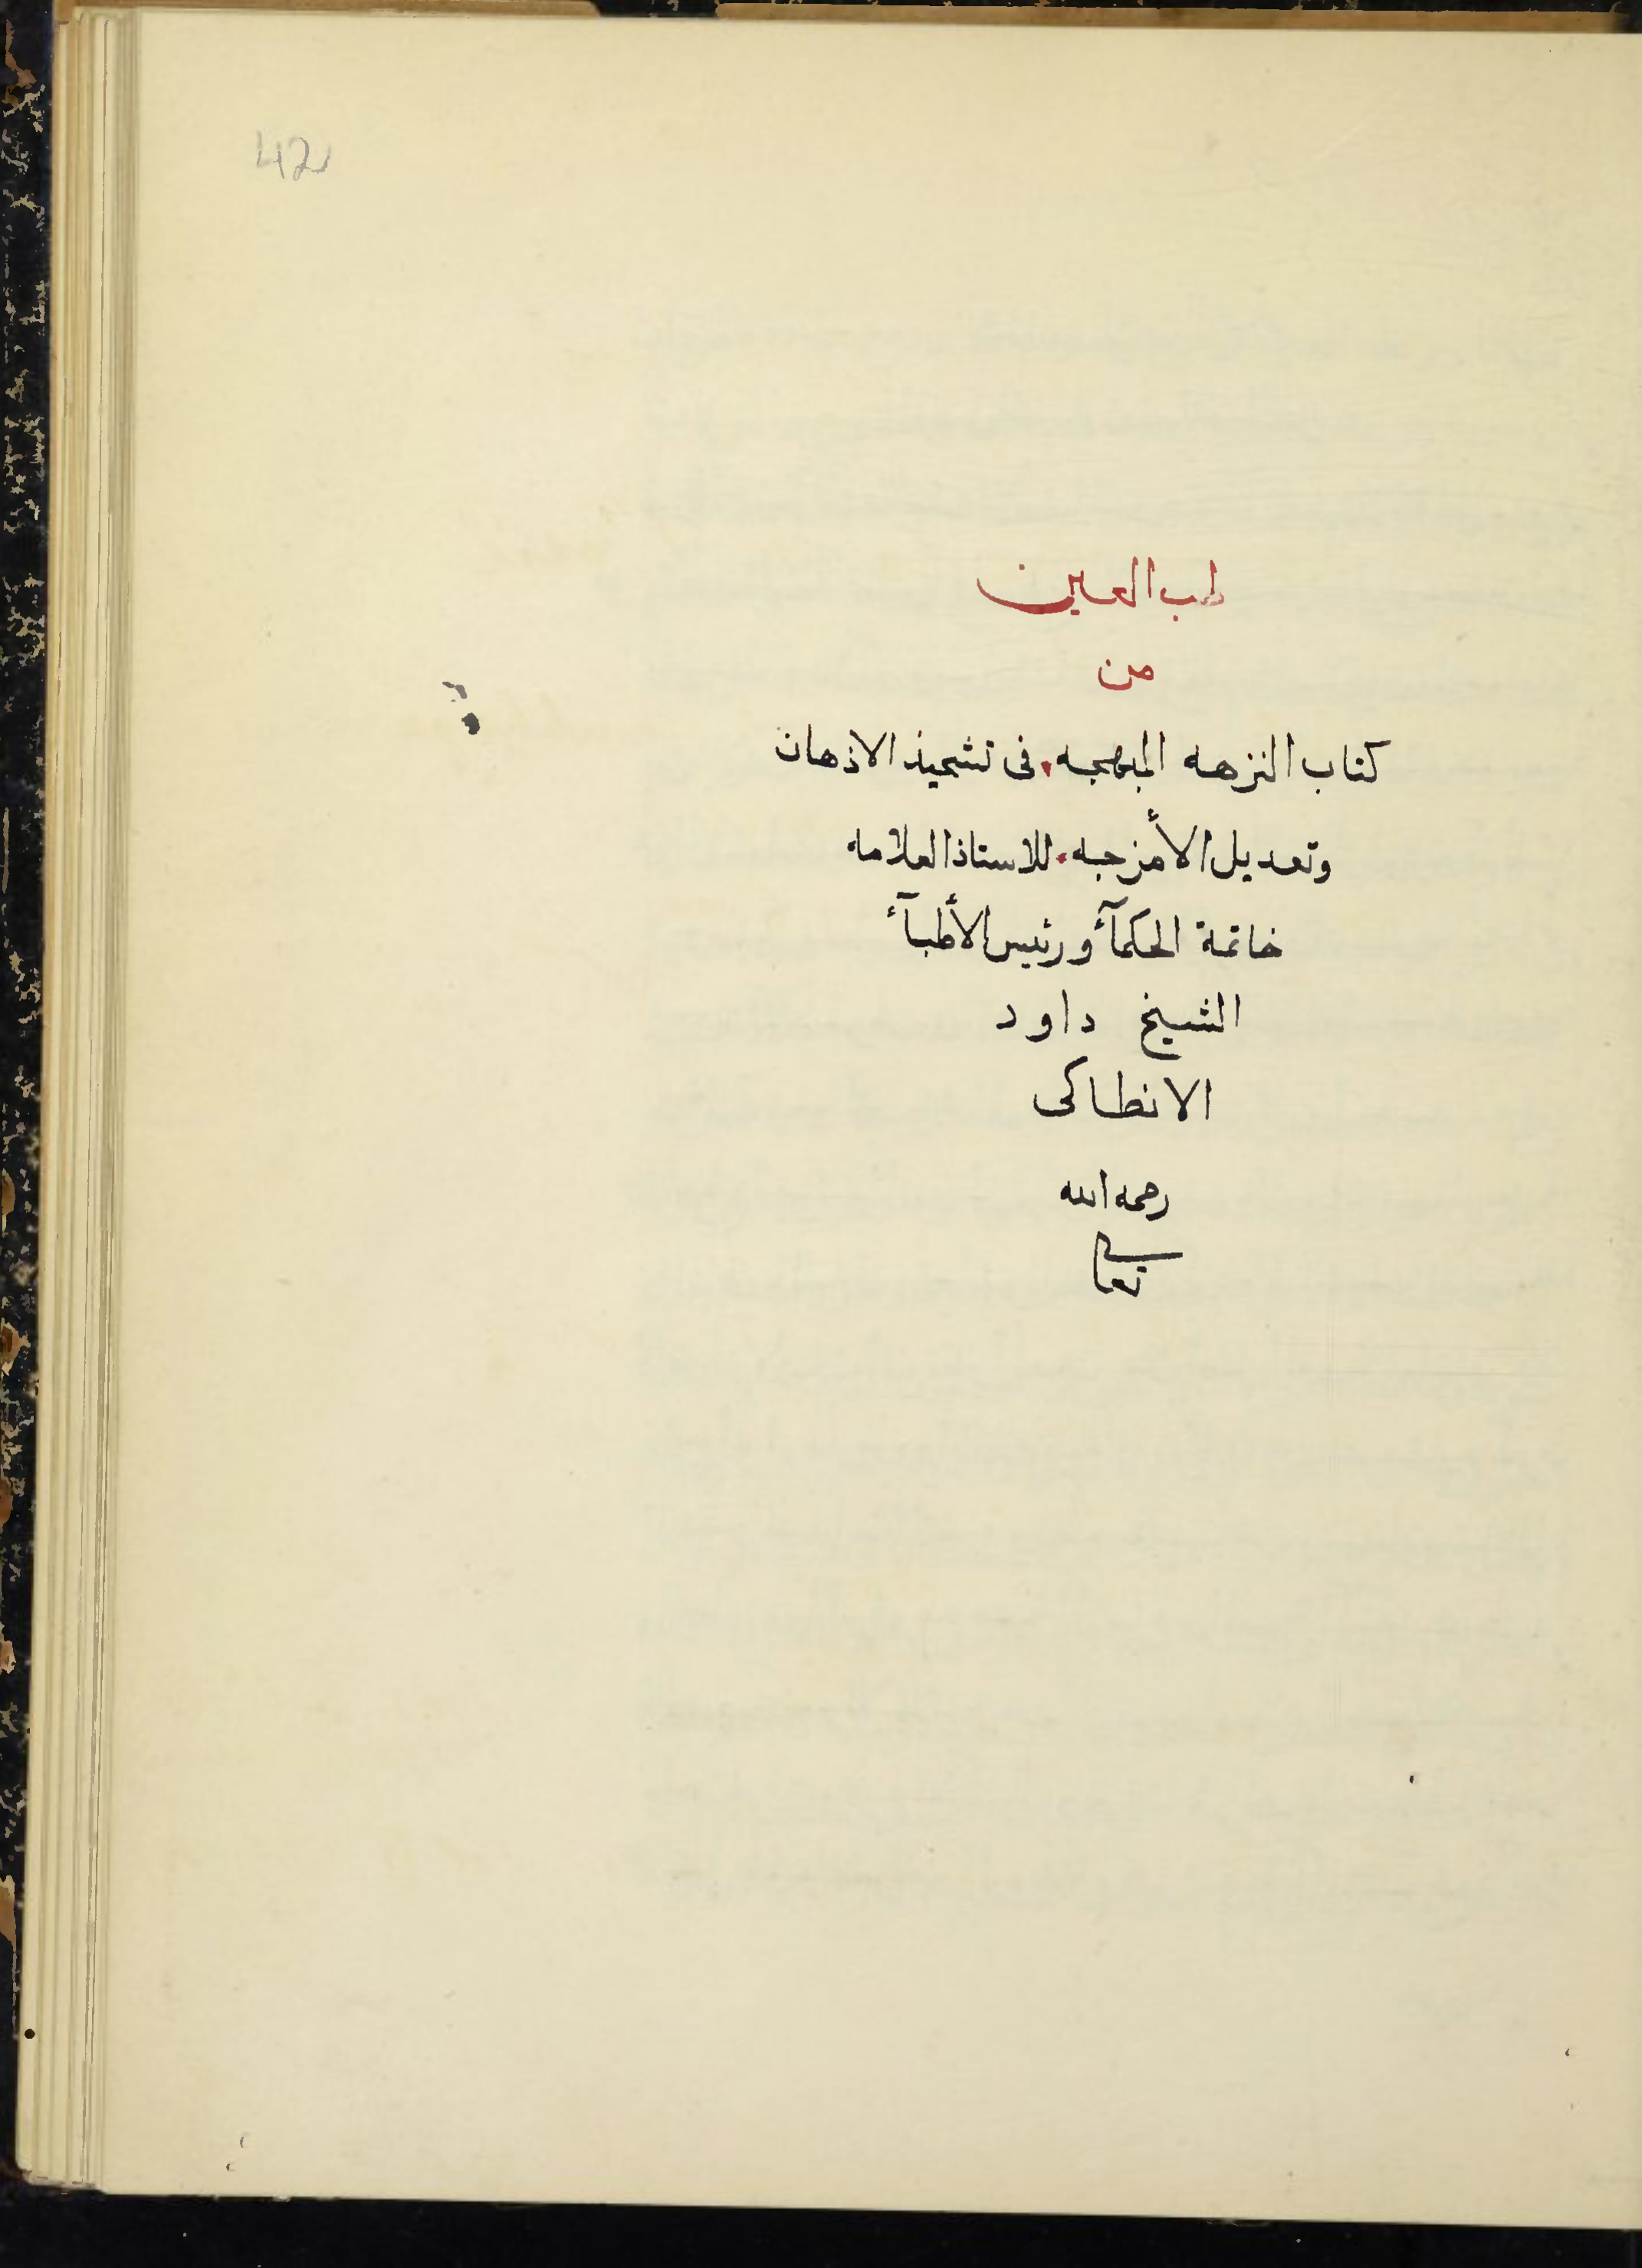 42
طب العين
من
كتاب النزهه المبهجه. فى تشحيذ الاذهان
وتعديل الأمزجه. للاستاذ العلامه
خاتمة الحكمآء ورئيس الأطبآء
الشيخ داود
الانطاكى
رحمه الله
تعالى